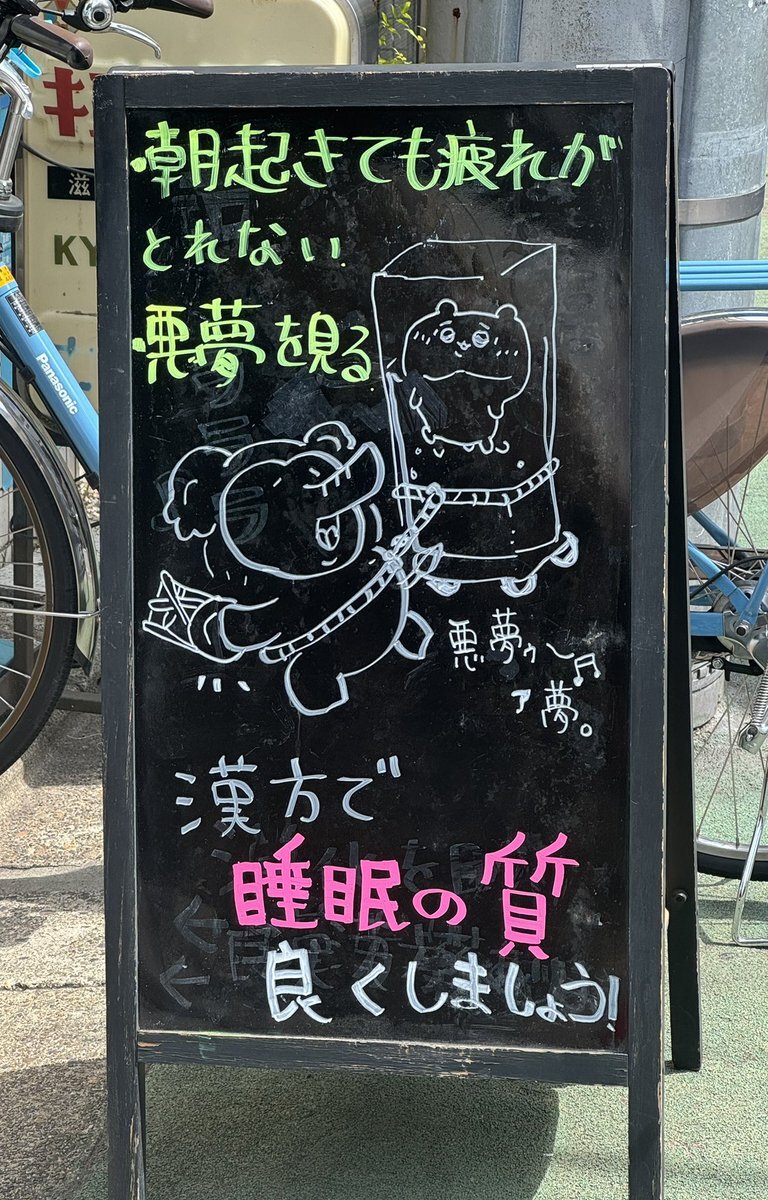 朝起きても疲れが
とれない
悪夢を見る
悪夢ゥ〜♬
ァ夢。
漢方で
睡眠の質
良くしましょう!
Panasonic
滋
KY